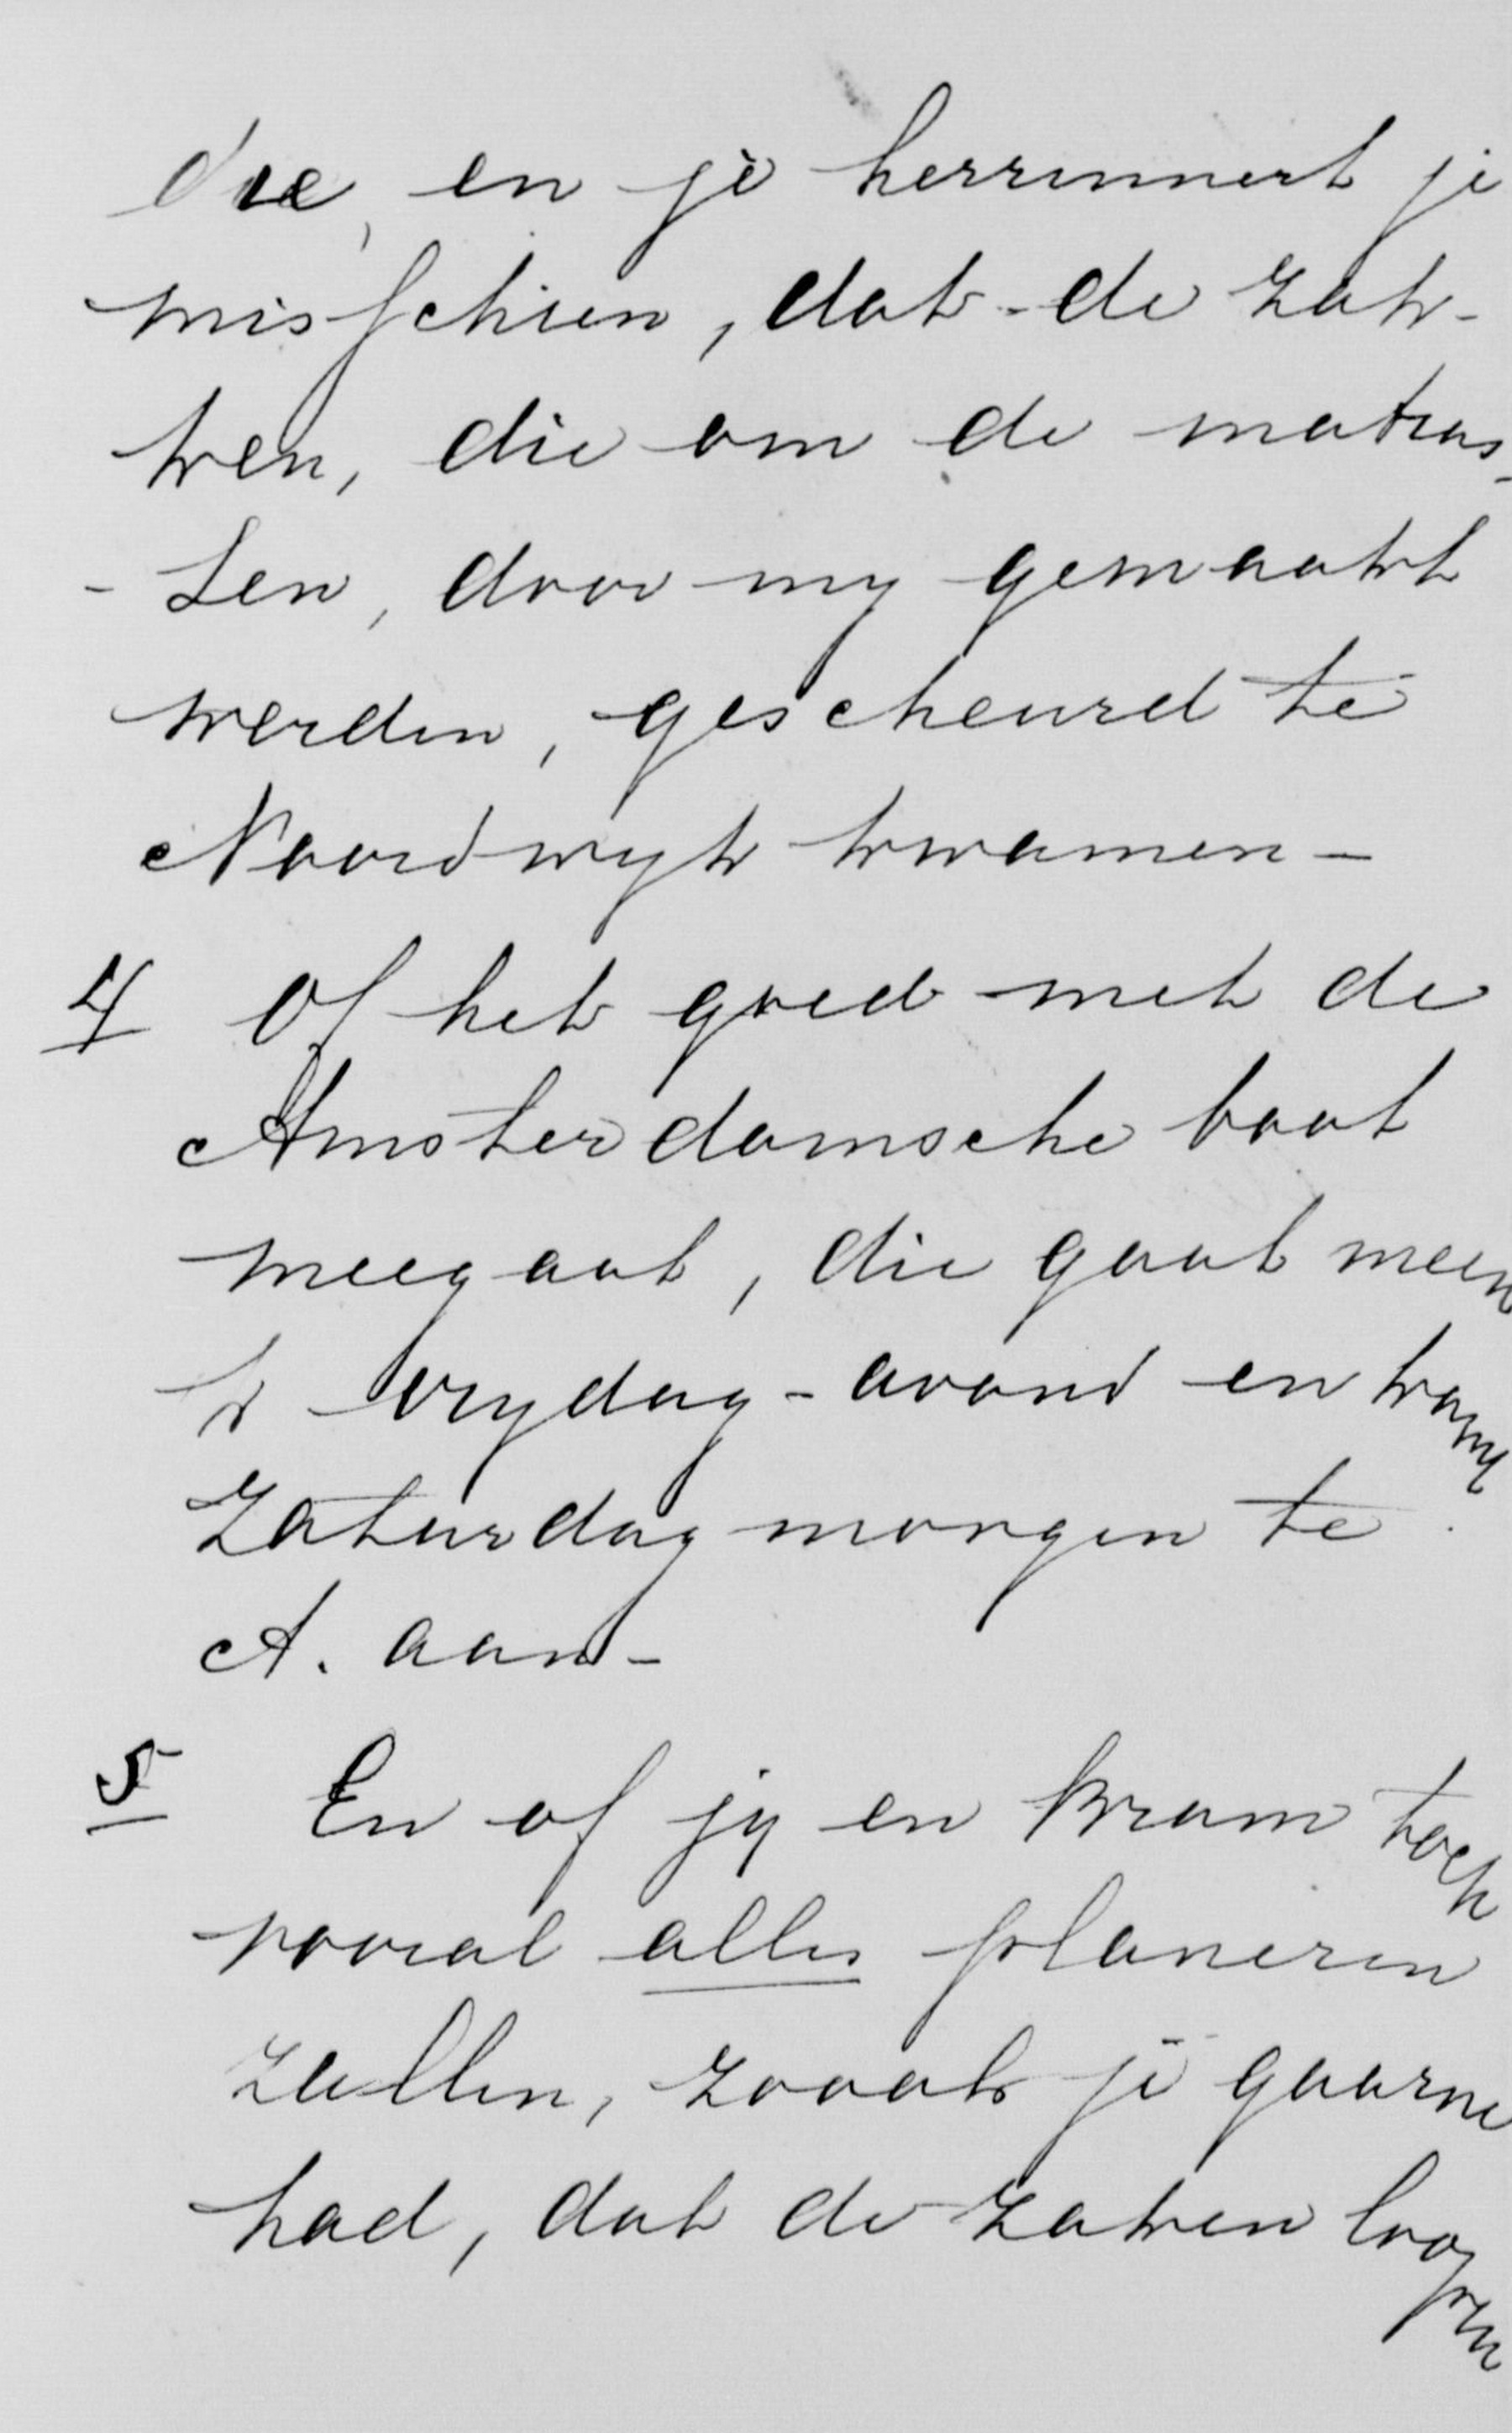 die, en je herrinnert je
misschien, dat de zak-
ken, die om de matras-
-sen, door my gemaakt
werden, gescheurd te
Noordwyk kwamen -
4 Of het goed met de
Amsterdamsche boot
meegaat, die gaat meen
k vrydag-avond en komt
Zaturdag morgen te
A. aan -
5 En of jy en Bram toch
vooral alles planeren
zullen, zooals je gaarne
had, dat de zaken loopen